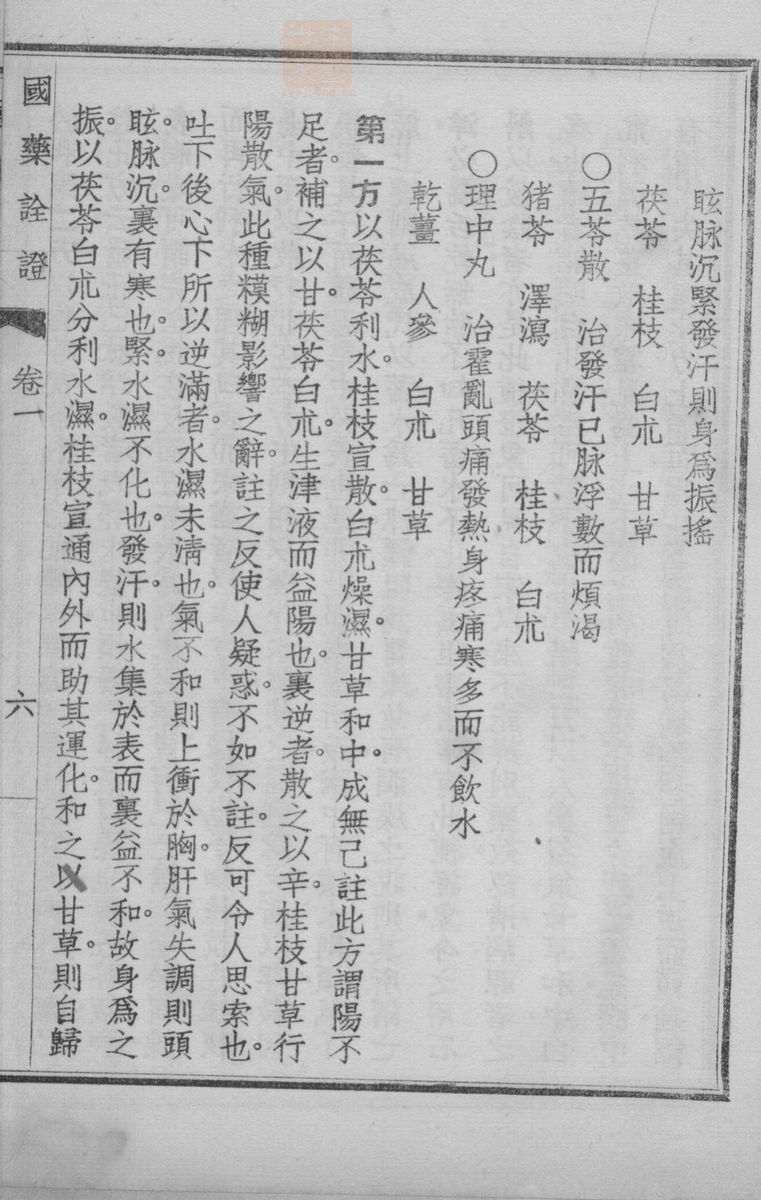 眩脉沉緊發汗則身爲振搖
茯苓　桂枝　白朮　甘草
○五苓散　治發汗已脉浮數而煩渴
猪苓　澤瀉　茯苓　桂枝　白朮
○理中丸　治霍亂頭痛發熱身疼痛寒多而不飲水
乾薑　人參　白朮　甘草
第一方以茯苓利水。桂枝宣散。白朮燥濕。甘草和中。成無己註此方謂陽不
足者。補之以甘。茯苓白朮。生津液而益陽也。裏逆者。散之以辛。桂枝甘草行
陽散氣。此種糢糊影響之辭。註之反使人疑惑。不如不註。反可令人思索也。
吐下後心下所以逆滿者。水濕未清也。氣不和則上衝於胸。肝氣失調則頭
眩。脉沉。裏有寒也。緊。水濕不化也。發汗。則水集於表而裏益不和。故身爲之
振。以茯苓白朮分利水濕。桂枝宣通內外而助其運化。和之以甘草。則自歸
國藥詮證
卷一
六